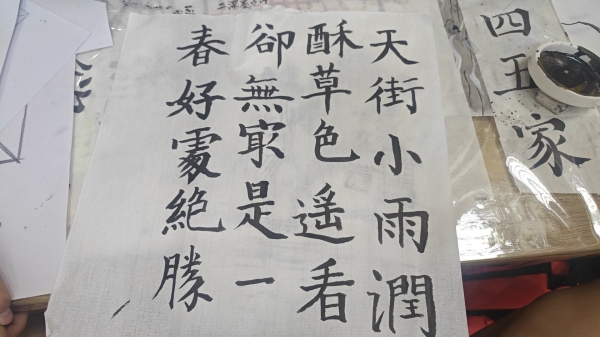 四五家
天街小雨潤
酥草色遙看
卻無冣是一
春好處絶勝